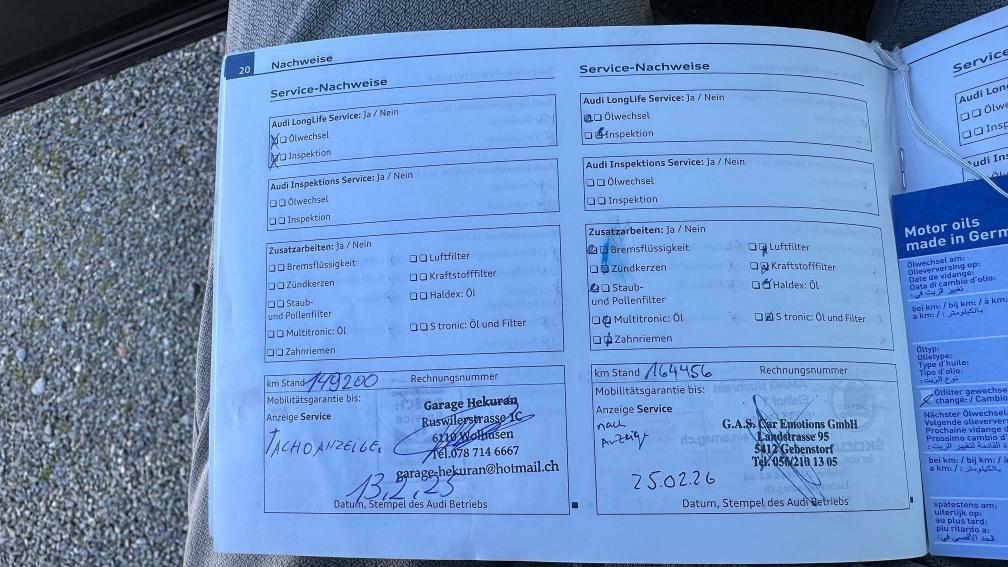 20 Nachweise
Service-Nachweise
Audi LongLife Service: Ja / Nein
Ölwechsel
Inspektion
Audi Inspektions Service: Ja / Nein
Ölwechsel
Inspektion
Zusatzarbeiten: Ja / Nein
Bremsflüssigkeit
Luftfilter
Zündkerzen
Kraftstofffilter
Staub-
und Pollenfilter
Haldex: Öl
Multitronic: Öl
S tronic: Öl und Filter
Zahnriemen
km Stand 149200
Rechnungsnummer
Mobilitätsgarantie bis:
Anzeige Service
TACHOANZEIGE.
Garage Hekuran
Ruswilerstrasse 1C
6110 Wolhusen
Tel.078 714 6667
garage-hekuran@hotmail.ch
13.2.25
Datum, Stempel des Audi Betriebs
Service-Nachweise
Audi LongLife Service: Ja / Nein
Ölwechsel
Inspektion
Audi Inspektions Service: Ja / Nein
Ölwechsel
Inspektion
Zusatzarbeiten: Ja / Nein
Bremsflüssigkeit
Luftfilter
Zündkerzen
Kraftstofffilter
Staub-
und Pollenfilter
Haldex: Öl
Multitronic: Öl
S tronic: Öl und Filter
Zahnriemen
km Stand 164456
Rechnungsnummer
Mobilitätsgarantie bis:
Anzeige Service
nach
Anzeige
G.A.S. Car Emotions GmbH
Landstrasse 95
5412 Gebenstorf
Tel. 056/210 13 05
25.02.26
Datum, Stempel des Audi Betriebs
Service
Audi Long
Ölw
Insp
Audi Ins
Motor oils
made in Germ
Ölwechsel am:
Olieverversing op:
Date de vidange:
Data di cambio d'olio:
تغيير الزيت في:
bei km: / bij km: / à km
a km: / بالكيلومتر:
Öltyp:
Olietype:
Type d'huile:
Tipo d'olio:
نوع الزيت:
Ölfilter gewechse
changé: / Cambio
Nächster Ölwechse
Volgende olieverver
Prochaine vidange d
Prossimo cambio d'
bei km: / bij km: / à
a km: / بالكيلومتر:
spätestens am:
uiterlijk op:
au plus tard:
piu ritardo a:
الحد الأقصى في: